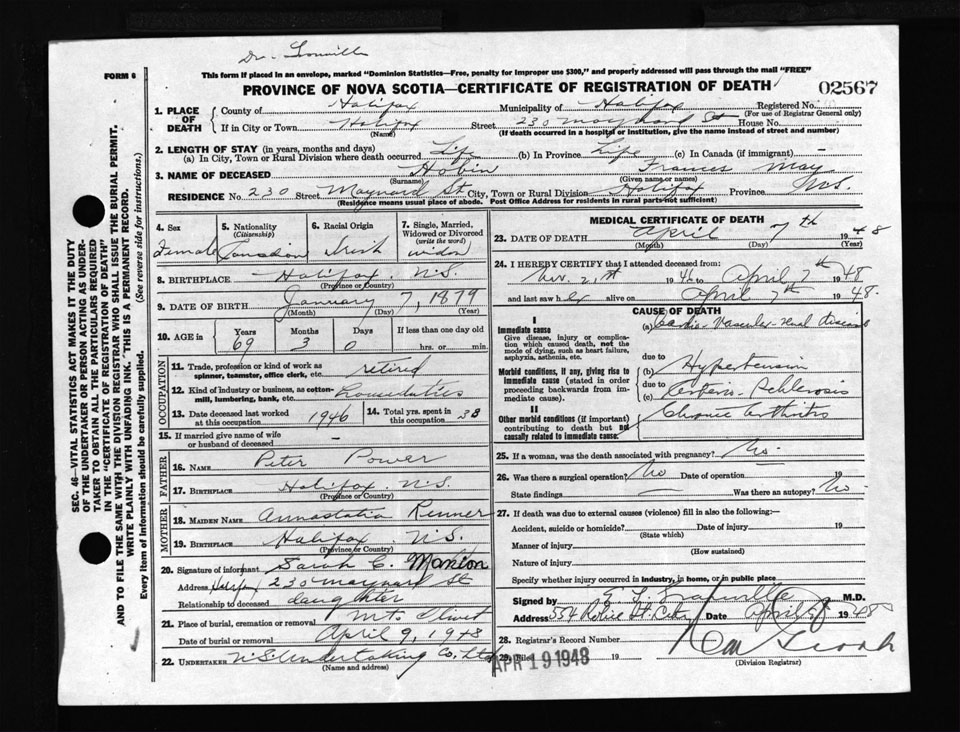 Dr.
FORM 6
This form if placed in an envelope, marked "Dominion Statistics—Free, penalty for improper use $300," and properly addressed will pass through the mail "FREE"
PROVINCE OF NOVA SCOTIA—CERTIFICATE OF REGISTRATION OF DEATH 02567
SEC. 46—VITAL STATISTICS ACT MAKES IT THE DUTY
OF THE UNDERTAKER OR PERSON ACTING AS UNDER-
TAKER TO OBTAIN ALL THE PARTICULARS REQUIRED
IN THE "CERTIFICATE OF REGISTRATION OF DEATH"
AND TO FILE THE SAME WITH THE DIVISION REGISTRAR WHO SHALL ISSUE THE BURIAL PERMIT.
WRITE PLAINLY WITH UNFADING INK. THIS IS A PERMANENT RECORD.
Every item of information should be carefully supplied. (See reverse side for instructions.)
1. PLACE OF DEATH
County of Halifax Municipality of Halifax Registered No.
(For use of Registrar General only)
If in City or Town Halifax Street 230 Maynard St House No.
(Name) (If death occurred in a hospital or institution, give the name instead of street and number)
2. LENGTH OF STAY (in years, months and days)
(a) In City, Town or Rural Division where death occurred Life (b) In Province Life (c) In Canada (if immigrant) —
3. NAME OF DECEASED Hobin Frances May
(Surname) (Given name or names)
RESIDENCE No. 230 Street Maynard St. City, Town or Rural Division Halifax Province N.S.
(Residence means usual place of abode. Post Office Address for residents in rural parts not sufficient)
4. Sex Female
5. Nationality (Citizenship) Canadian
6. Racial Origin Irish
7. Single, Married, Widowed or Divorced (write the word) widow
8. BIRTHPLACE Halifax N.S.
(Province or Country)
9. DATE OF BIRTH January 7, 1879
(Month) (Day) (Year)
10. AGE in Years Months Days If less than one day old
69 3 0 hrs. or min.
OCCUPATION
11. Trade, profession or kind of work as spinner, teamster, office clerk, etc. retired
12. Kind of industry or business, as cotton-mill, lumbering, bank, etc.
13. Date deceased last worked at this occupation 1946
14. Total yrs. spent in this occupation 38
15. If married give name of wife or husband of deceased
FATHER
16. NAME Peter Power
17. BIRTHPLACE Halifax N.S.
(Province or Country)
MOTHER
18. MAIDEN NAME Annastatia Renner
19. BIRTHPLACE Halifax N.S.
(Province or Country)
20. Signature of informant Sarah C. Manton
Address Halifax 230 Maynard St
Relationship to deceased daughter
21. Place of burial, cremation or removal Mt. Olivet
Date of burial or removal April 9, 1948
22. UNDERTAKER N.S. Undertaking Co. Ltd
(Name and address)
MEDICAL CERTIFICATE OF DEATH
23. DATE OF DEATH April 7th 1948
(Month) (Day) (Year)
24. I HEREBY CERTIFY that I attended deceased from:
1946 to April 7th 1948
and last saw her alive on April 7th 1948.
CAUSE OF DEATH
I
Immediate cause
Give disease, injury or complication which caused death, not the mode of dying, such as heart failure, asphyxia, asthenia, etc.
(a) Cardio-Vascular-renal disease
due to
Morbid conditions, if any, giving rise to immediate cause (stated in order proceeding backwards from immediate cause).
(b) Hypertension
due to
(c) Arterio-Schlerosis
II
Other morbid conditions (if important) contributing to death but not causally related to immediate cause.
Chronic Arthritis
25. If a woman, was the death associated with pregnancy? No.
26. Was there a surgical operation? No Date of operation 19
State findings — Was there an autopsy? No.
27. If death was due to external causes (violence) fill in also the following:—
Accident, suicide or homicide? Date of injury 19
(State which)
Manner of injury
(How sustained)
Nature of injury
Specify whether injury occurred in industry, in home, or in public place
Signed by M.D.
Address 554 Robie St City Date April 8 1948
28. Registrar's Record Number
29. Filed APR 19 1948 19
(Division Registrar)